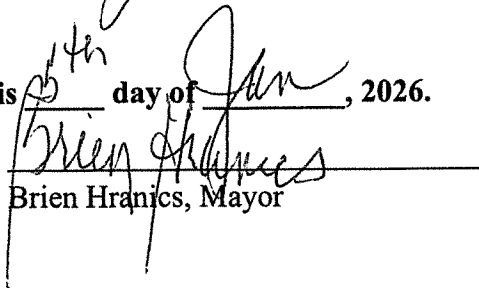 is 5th day of Jan, 2026.
Brien Hranics
Brien Hranics, Mayor